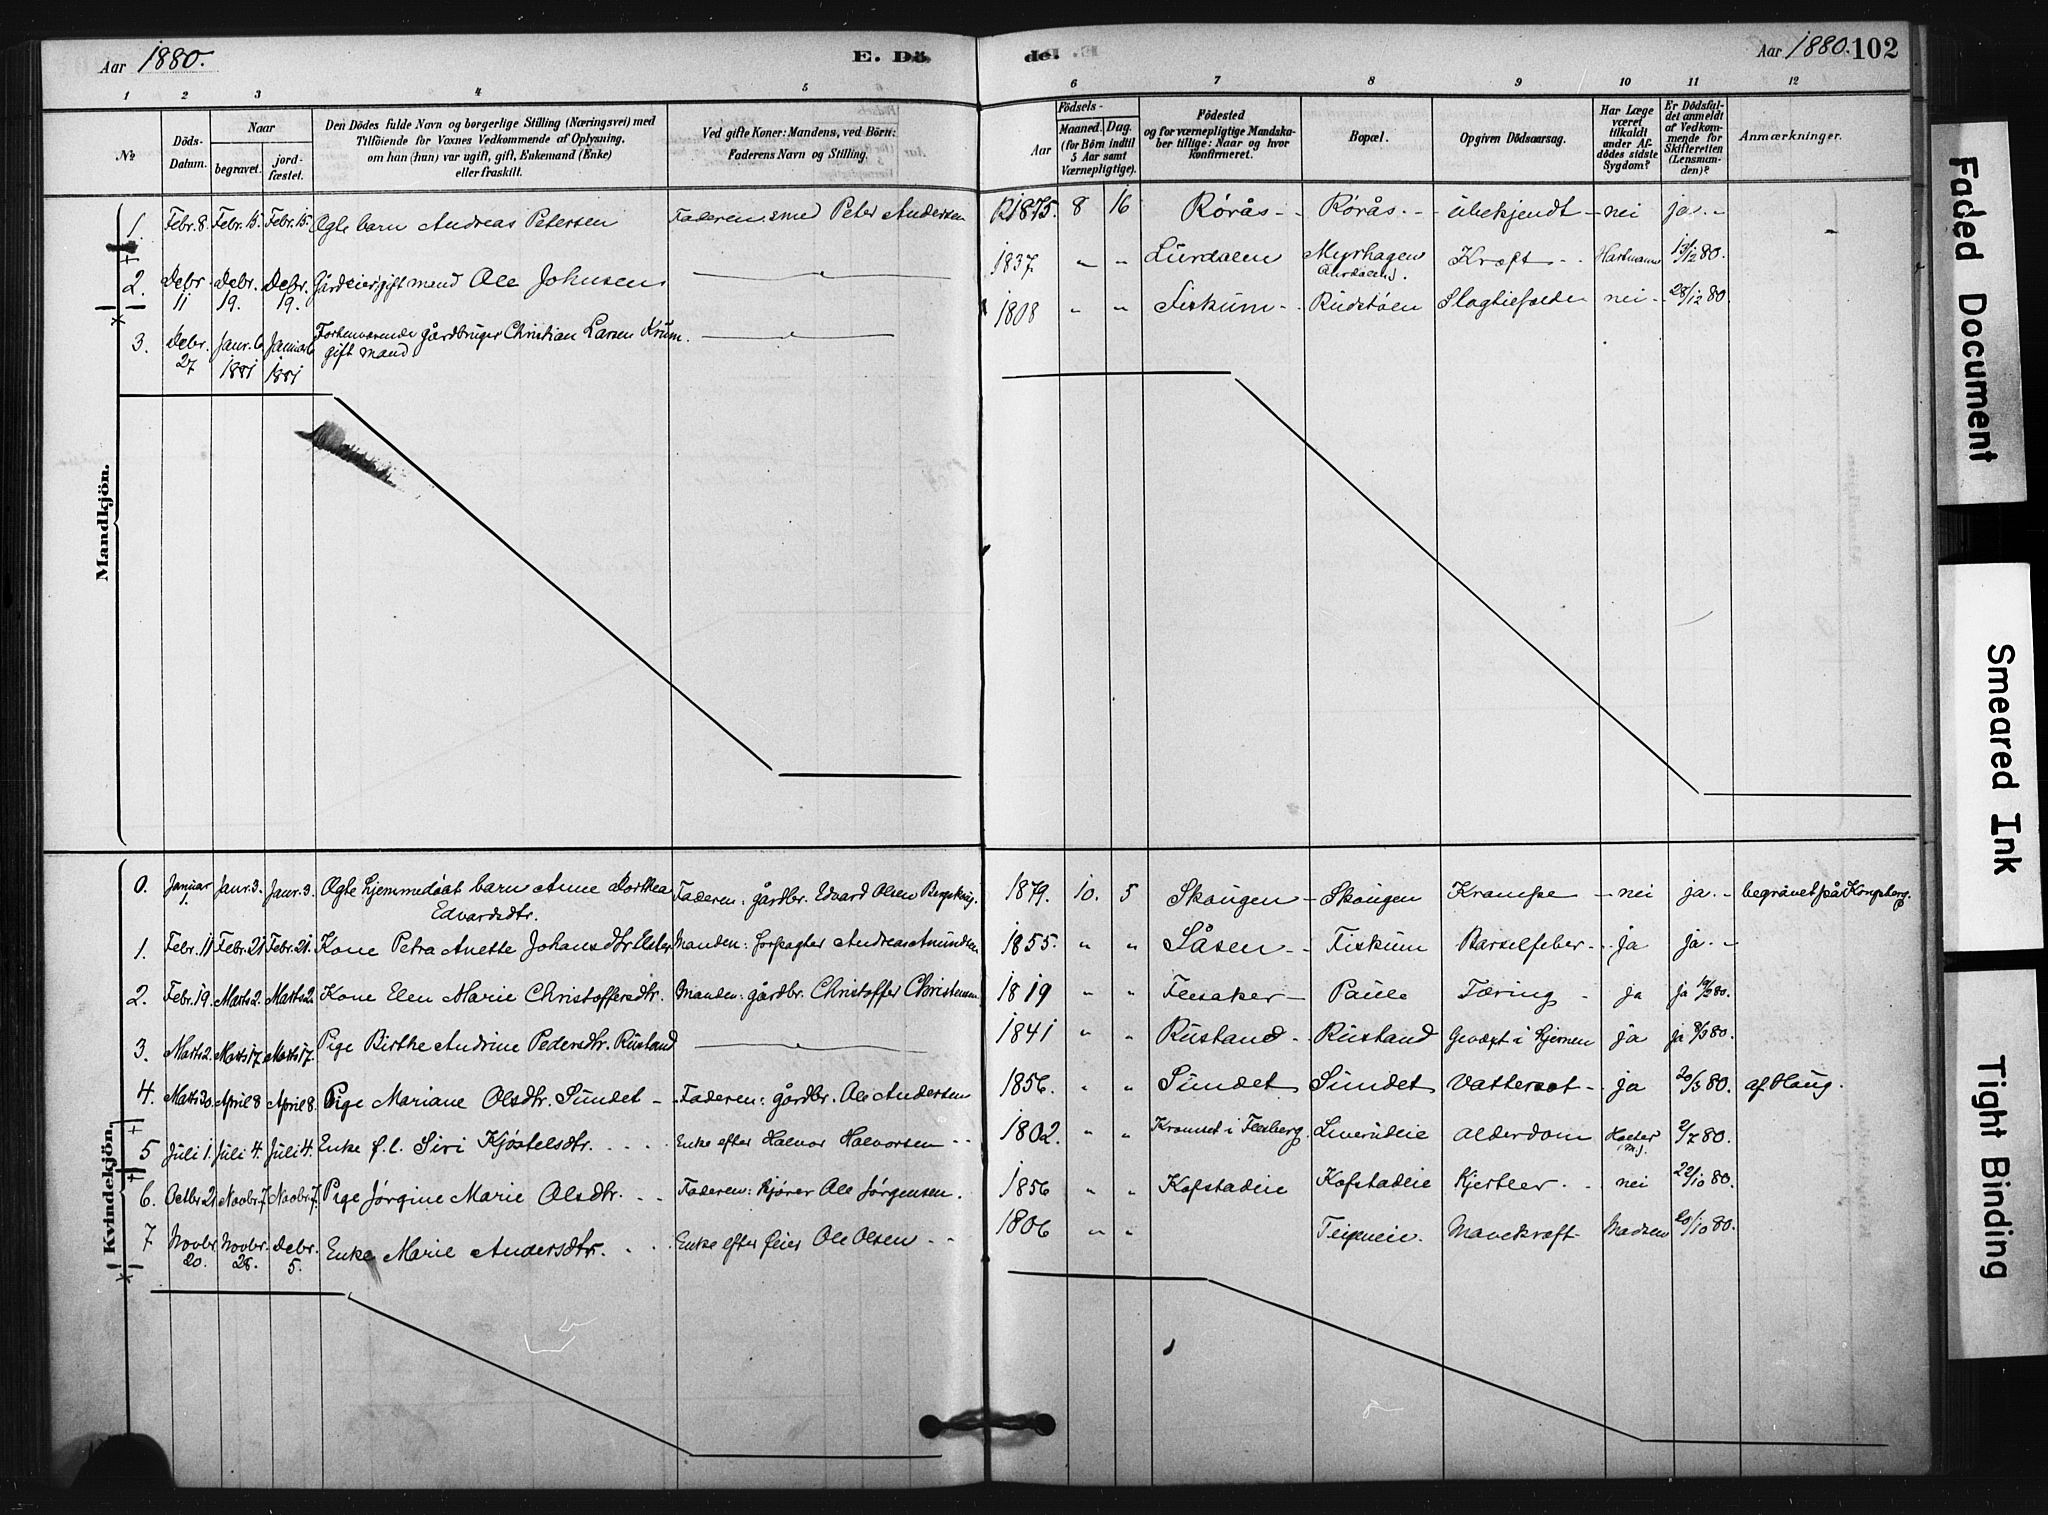 Aar 1880.
E. Dö
de.
Aar 1880. 102
1 2 3 4 5 6 7 8 9 10 11 12
№
Döds-Datum.
Naar
begravet.
jordfæstet.
Den Dödes fulde Navn og borgerlige Stilling (Næringsvei) med
Tilföiende for Voxnes Vedkommende af Oplysning,
om han (hun) var ugift, gift, Enkemand (Enke)
eller fraskilt.
Ved gifte Koner: Mandens, ved Börn:
Faderens Navn og Stilling.
Födsels-
Aar
Maaned. Dag.
(for Börn indtil
5 Aar samt
Værnepligtige).
Födested
og for værnepligtige Mandskaber tillige: Naar og hvor
konfirmeret.
Bopæl.
Opgiven Dödsaarsag.
Har Læge
været
tilkaldt
under Afdödes sidste
Sygdom?
Er Dödsfaldet anmeldt
af Vedkommende for
Skifteretten
(Lensmanden)?
Anmærkninger.
Mandkjön.
1. Febr. 8. Febr. 15. Febr. 15. Ægte barn Andreas Petersen Faderen smed Peter Andersen 1875. 8 16 Rørås - Rørås - ubekjendt - nei ja -
2. Debr 11 Debr. 19. Debr. 19. Gårdeier, gift mand Ole Johnsen 1837 " " Lurdalen Myrhagen (Lurdalens). Kræft - Hartmann 13/12 80.
3. Debr. 27 Janr. 6 1881 Januar 6 1881 Forhenværende gårdbruger Christian Larsen Krum. gift mand 1808 " " Fiskum - Rudstøen Slagtilfælde nei - 28/12 80.
Kvindekjön.
0. Januar 1 Janr. 3. Janr. 3. Ægte hjemmedøbt barn Anne Dorthea Edvardsdtr. Faderen: gårdbr. Edvard Olsen 1879. 10. 5 Skougen - Skougen Krampe - nei ja. - begravet på Kongsberg.
1. Febr. 11 Febr. 21 Febr. 21. Kone Petra Anette Johansdtr. Manden: forpagter Andreas Amundsen 1855. " " Låsen - Fiskum Barselfeber - ja ja -
2. Febr. 19. Marts 2. Marts 2. Kone Elen Marie Christoffersdtr. Manden: gårdbr. Christoffer Christensen 1819 " " Flesaker - Paule Tæring - ja ja 80.
3. Marts 2. Marts 17. Marts 17. Pige Birthe Andrine Pedersdtr. Rustand 1841 " " Rustand - Rustand Gevæxt i Hjernen ja ja 8/3 80.
4. Marts 20. April 8 April 8. Pige Mariane Olsdtr. Sundet - Faderen: gårdbr. Ole Andersen 1856. " " Sundet Sundet Vattersot - ja 20/3 80. af Haug.
5 Juli 1. Juli 4. Juli 4. Enke f. l. Siri Kjøstelsdtr. Enke efter Halvor Halvorsen 1802. " " i Flesberg. Alderdom 2/7 80.
6. Octbr. 21 Novbr. 7. Novbr. 7. Pige Jørgine Marie Olsdtr. Faderen: kjører Ole Jørgensen. 1856 " " Kofstadeie Kofstadeie Kjertler. nei 22/10 80.
7 Novbr. 20. Novbr. 28. Debr. 5. Enke Marie Andersdtr. Enke efter feier Ole Olsen 1806 " " Mavekræft - Madsen 20/10 80.
Faded Document
Smeared Ink
Tight Binding